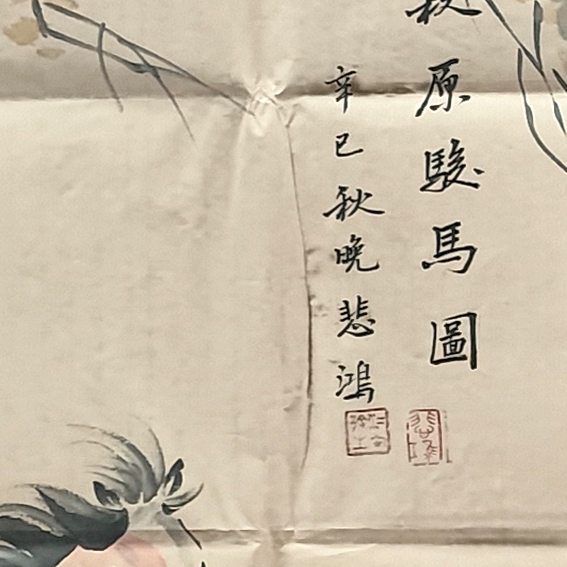 秋原駿馬圖
辛巳秋晚悲鴻